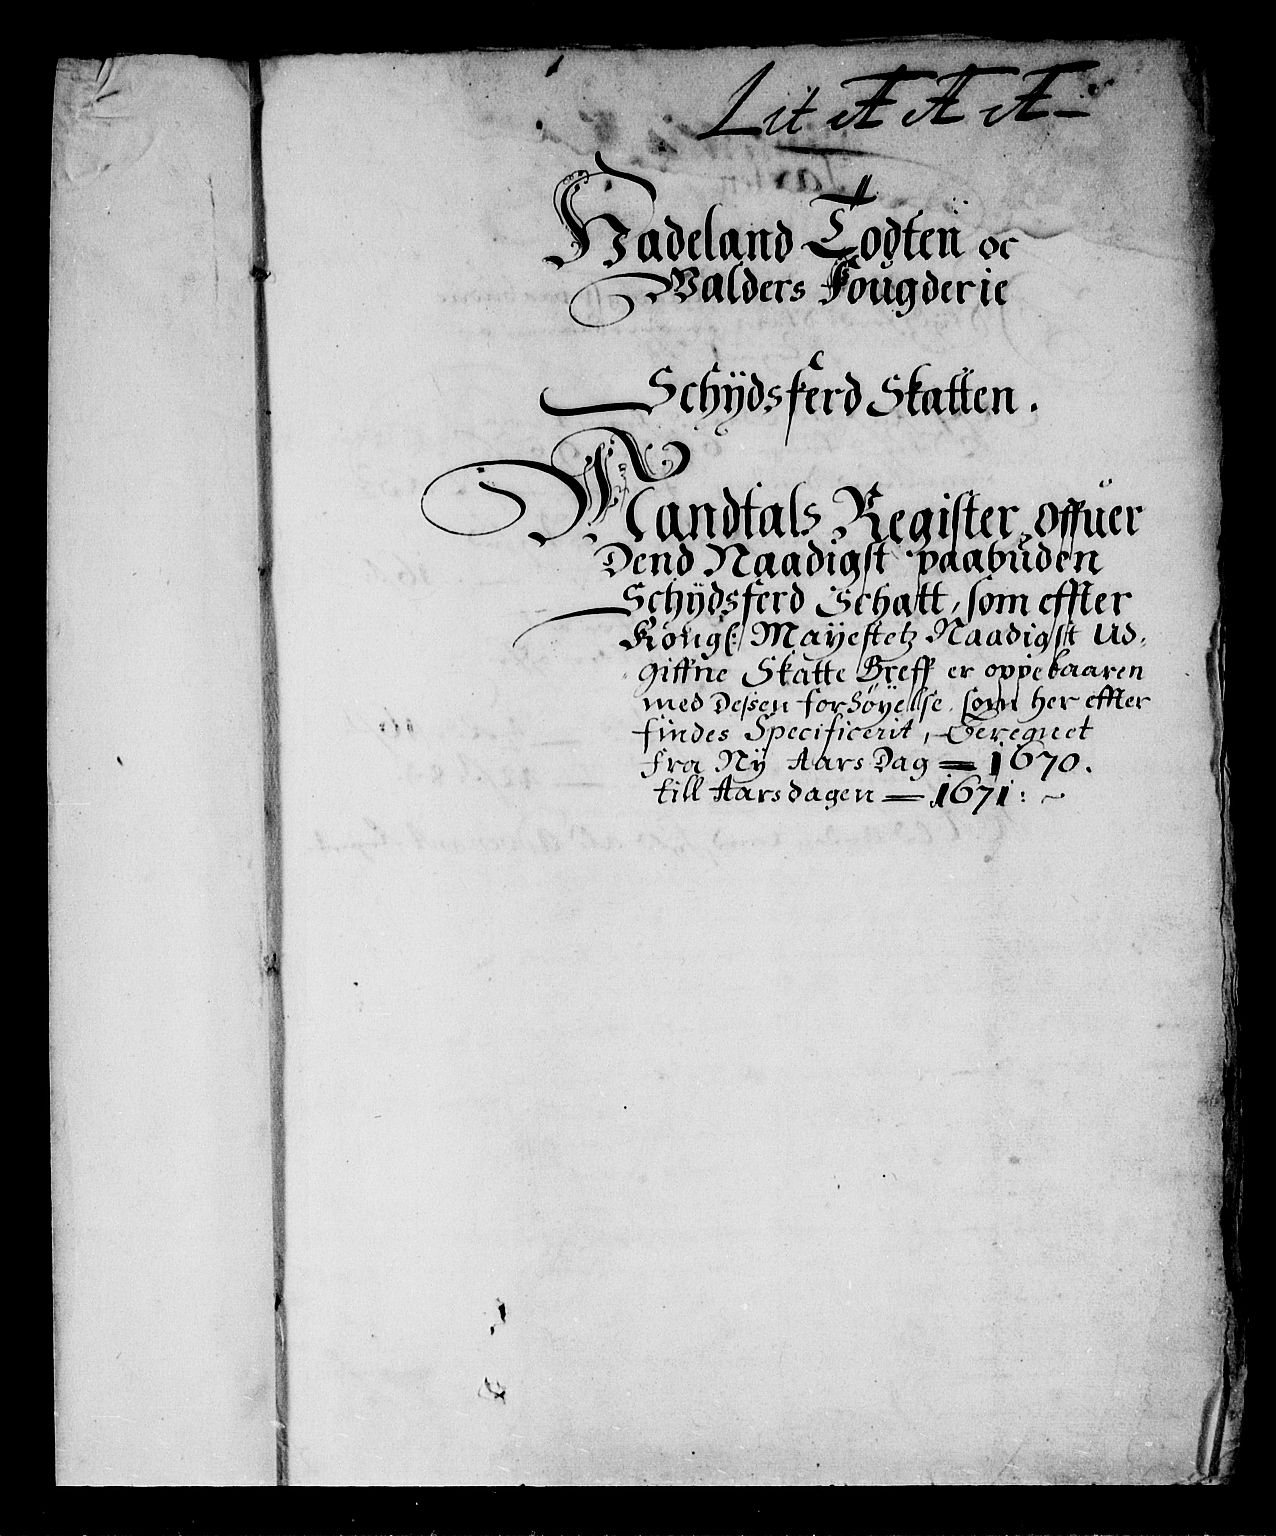 Lit A A A
Hadeland Todten oc
Walders Fougderie
Schÿdsferd Skatten.
Mandtals Register offuer
Dend Naadigst paabuden
Schÿdsferd Schatt, som effter
Kongl: Maÿestetz Naadigst Ud,
giffne Skatte Breff er oppebaaren
med Dessen forhøyelse, som her effter
findes Specificerit, Beregnet
fra Nÿ Aars Dag = 1670.
till Aarsdagen = 1671: ~